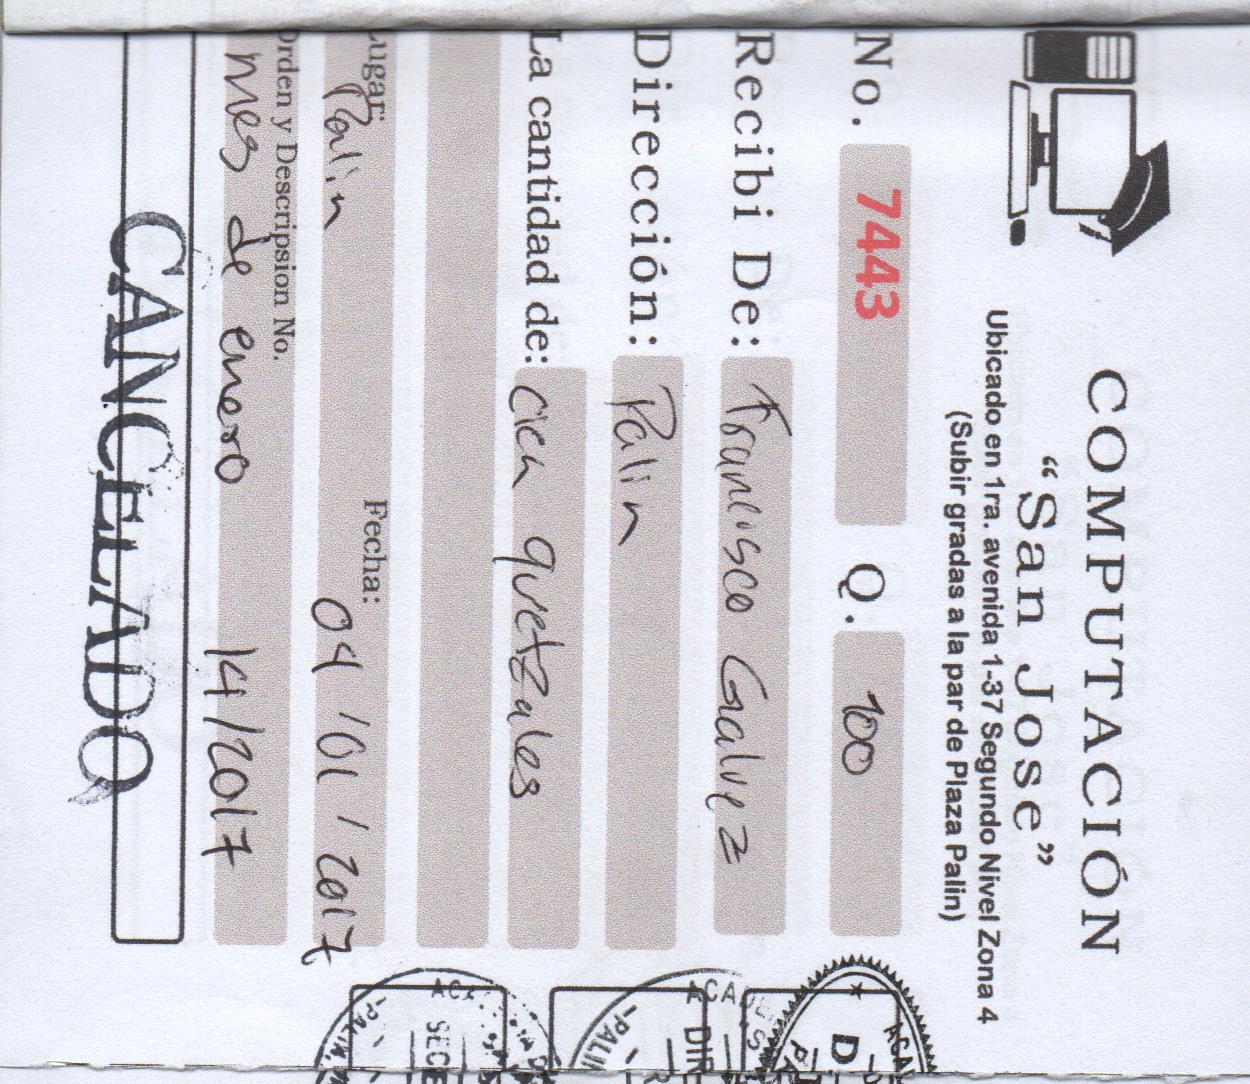 COMPUTACIÓN
“San Jose”
Ubicado en 1ra. avenida 1-37 Segundo Nivel Zona 4
(Subir gradas a la par de Plaza Palin)
No. 7443 Q. 100
Recibi De: Francisco Galvez
Dirección: Palin
La cantidad de: cien quetzales
Lugar: Palin Fecha: 04/01/2017
Orden y Descripsion No.
mes de enero 14/2017
CANCELADO
ACA
SECRE
-PALIN,
ACADE
DIR
-PALIN
ACA